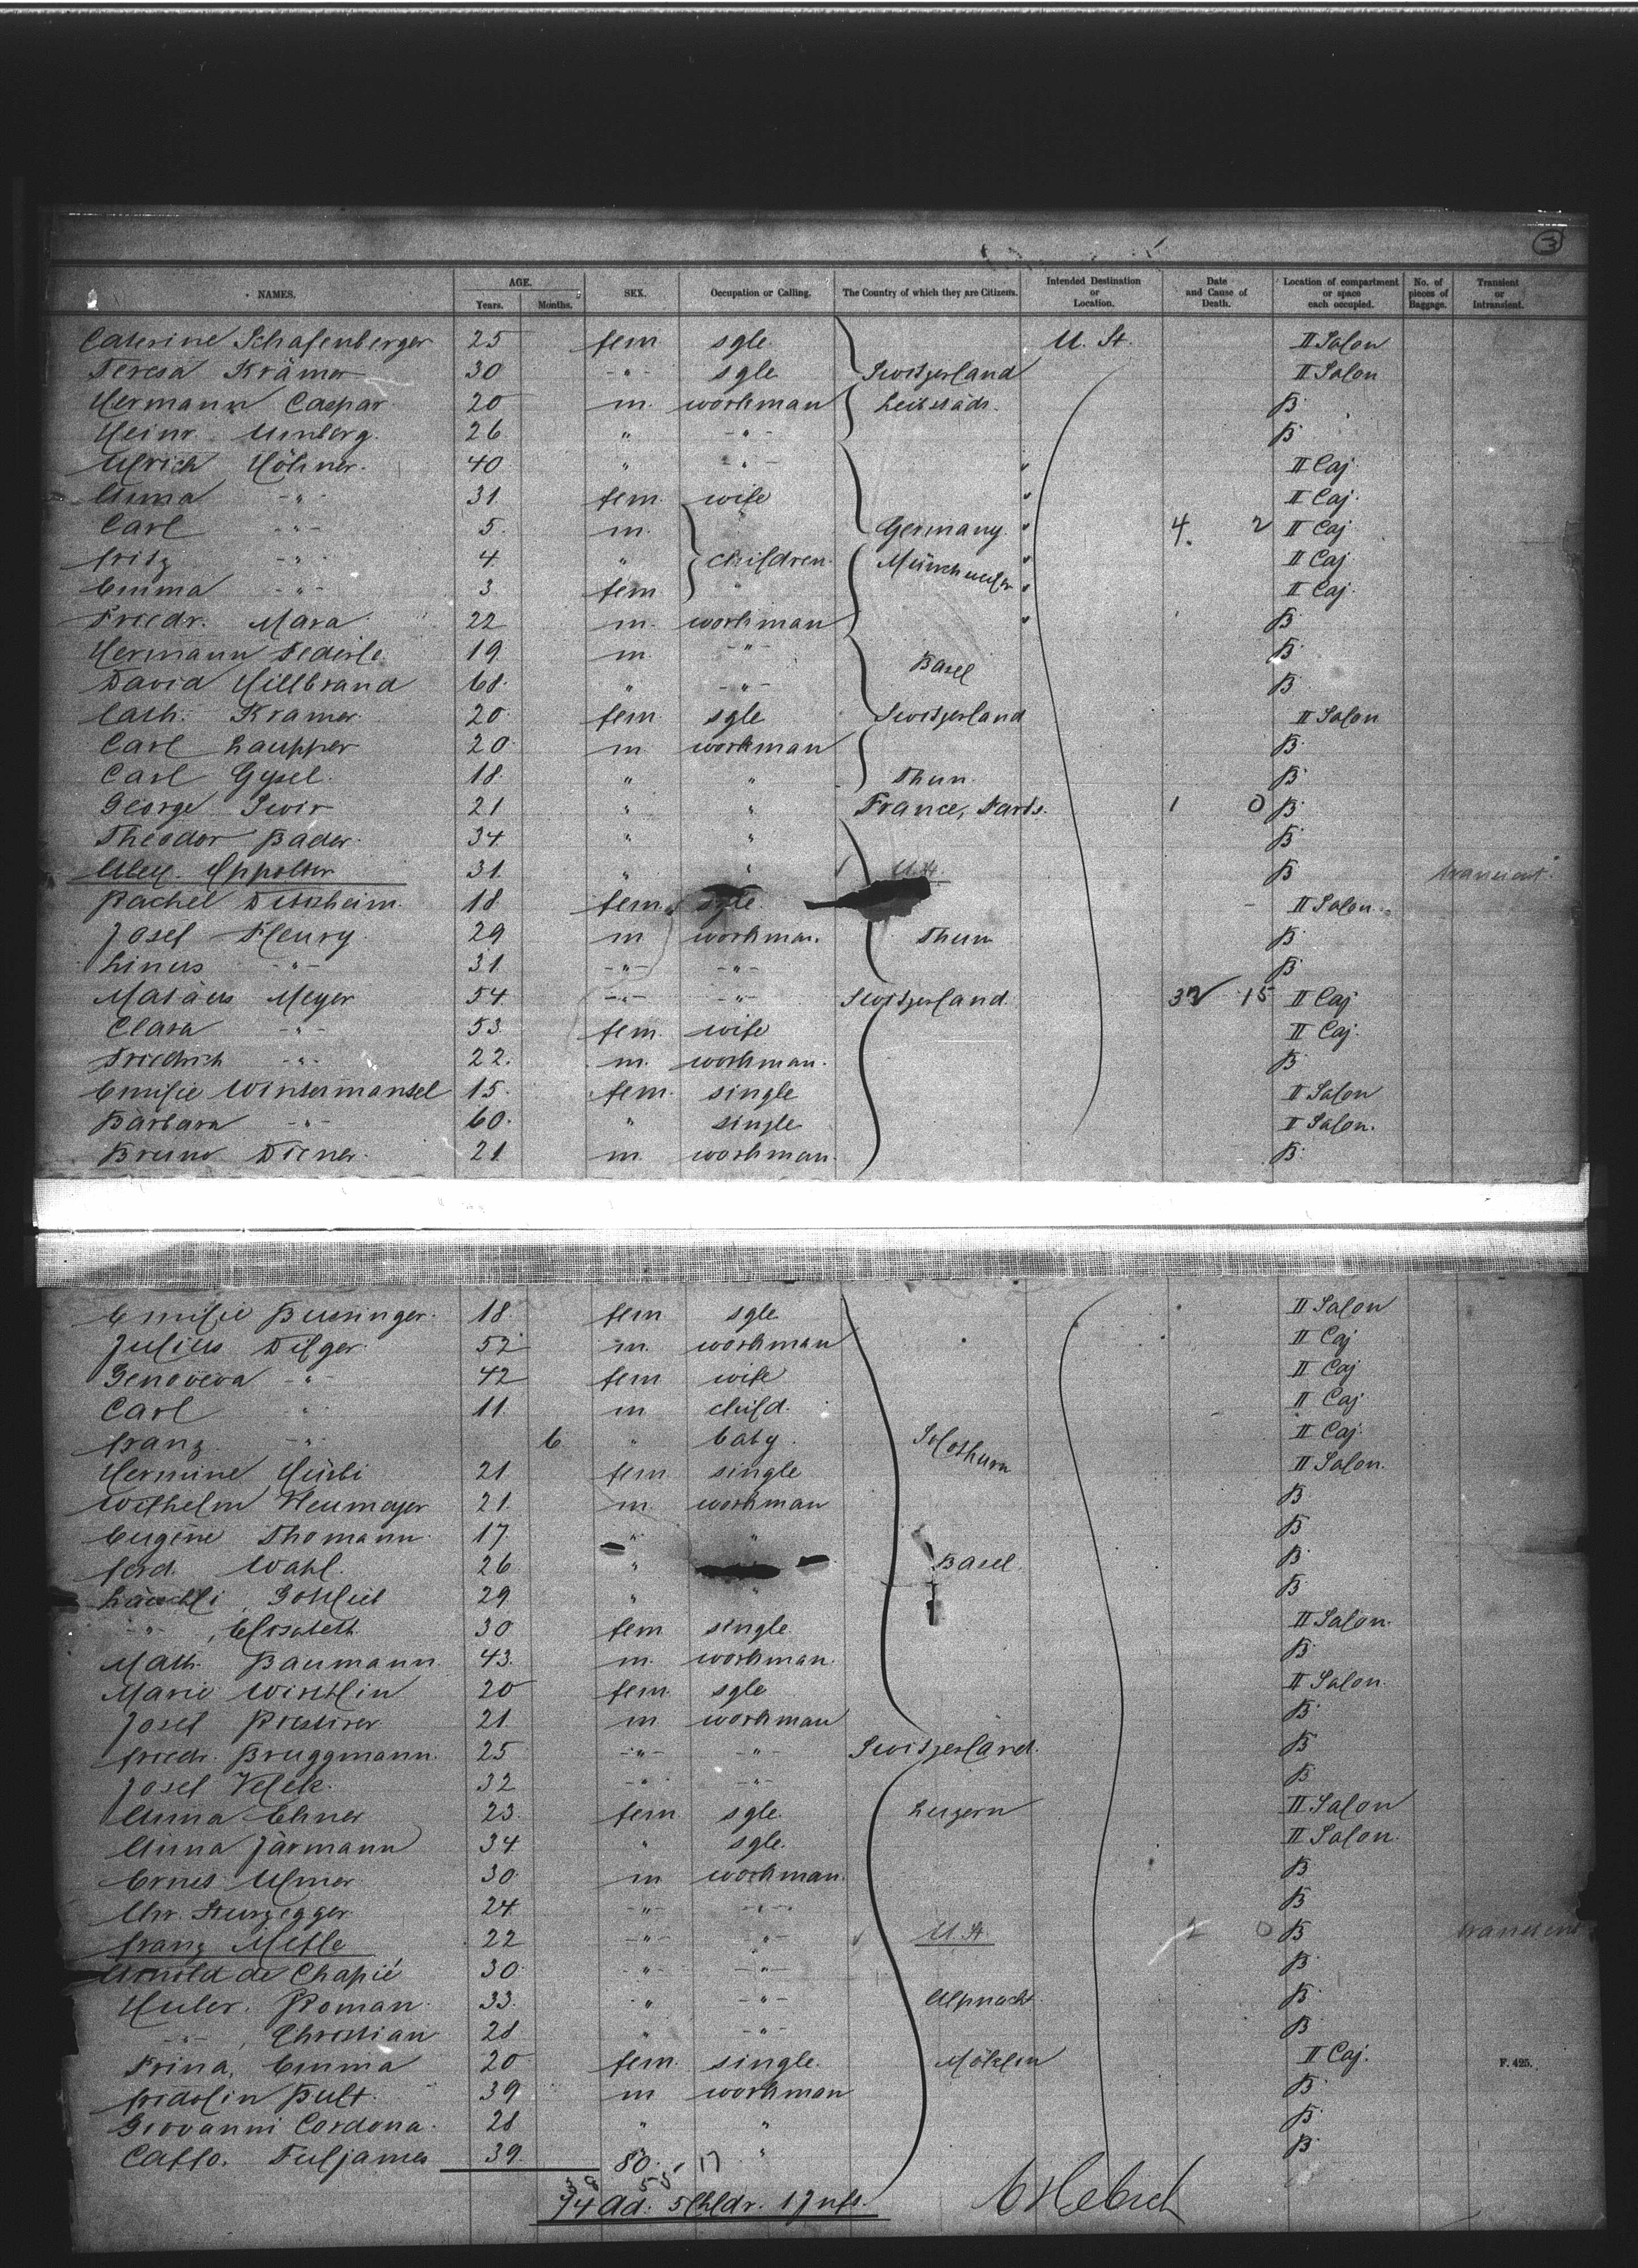 3
NAMES. AGE. Years. Months. SEX. Occupation or Calling. The Country of which they are Citizens. Intended Destination or Location. Date and Cause of Death. Location of compartment or space each occupied. No. of pieces of Baggage. Transient or Intransient.
Caterine Schafenberger 25 fem sgle. U. St. II Salon
Teresa Krämer 30 -"- sgle Switzerland II Salon
Hermann Caspar 20 m. workman B.
Heinr. Umberg. 26 " -"- B.
Ulrich Höhner. 40 " -"- " II Caj.
Anna -"- 31 fem. wife " II Caj.
Carl -"- 5. m. " Germany " 4. 2 II Caj.
Fritz -"- 4 " children. " II Caj.
Emma -"- 3. fem " " II Caj.
Friedr. Mara 22 m. workman " B.
Hermann Federle 19. m. -"- Basel B.
David Hillbrand 68. " -"- B.
Cath. Kramer. 20 fem. sgle Switzerland II Salon
Carl Laupper 20. m. workman B.
Carl Gysel. 18. " " Thun. B.
George Swir 21 " " France, Paris. 1 0 B.
Theodor Bader. 34 " " B.
31. " " U. St. B. transient.
Rachel 18 fem. sgle. II Salon.
Josef Fleury 29 m workman. Thun B.
Linus -"- 31 -"- -"- B.
Matäus Meyer 54 -"- -"- Switzerland. 15 II Caj
Clara -"- 53. fem. wife II Caj.
Friedrich -"- 22. m. workman. B.
Emilie Wintermantel 15. fem. single II Salon
Barbara -"- 60. " single II Salon.
Bruno Diener. 21 m. workman. B.
Emilie 18. fem sgle II Salon
Julius Dilger. 52 m. workman II Caj
Genoveva -"- 42 fem wife II Caj
Carl -"- 11. m child. II Caj
Franz. -"- 6 " baby. Solothurn II Caj.
Hermine Hürbi 21 fem single II Salon.
Wilhelm Heumayer 21. m workman B.
Eugène Thomann. 17. " " B
Ferd. Wahl. 26 " Basel. B.
Gottlieb 29 " " B.
-"- , Elisabeth 30 fem single II Salon.
Math. Baumann 43. m. workman. B.
Marie Wirthlin 20 fem. sgle II Salon.
Josef 21. m workman B.
Friedr. Bruggmann. 25 -"- -"- Switzerland. B
Josef 32 -"- -"- B
Anna Ebner 23. fem sgle. Luzern II Salon
Anna Järmann 34 " sgle. II Salon.
Ernst Ulmer 30. m workman. B.
Chr. Sturzegger 24. -"- -"- B.
Franz 22 -"- -"- U. St. 0 B transient
Arnold de Chapié 30. -"- -"- B.
Huler. Roman. 33. " -"- Alpnach B.
-"- , Christian 28 " -"- B.
Frina, Emma 20 fem. single. Möhlin II Caj. F. 425.
Fridolin Bult. 39 m workman B.
Giovanni Cordona. 28 " " B.
39. " B.
80. 17
74 Ad. 5 Chldr. 1